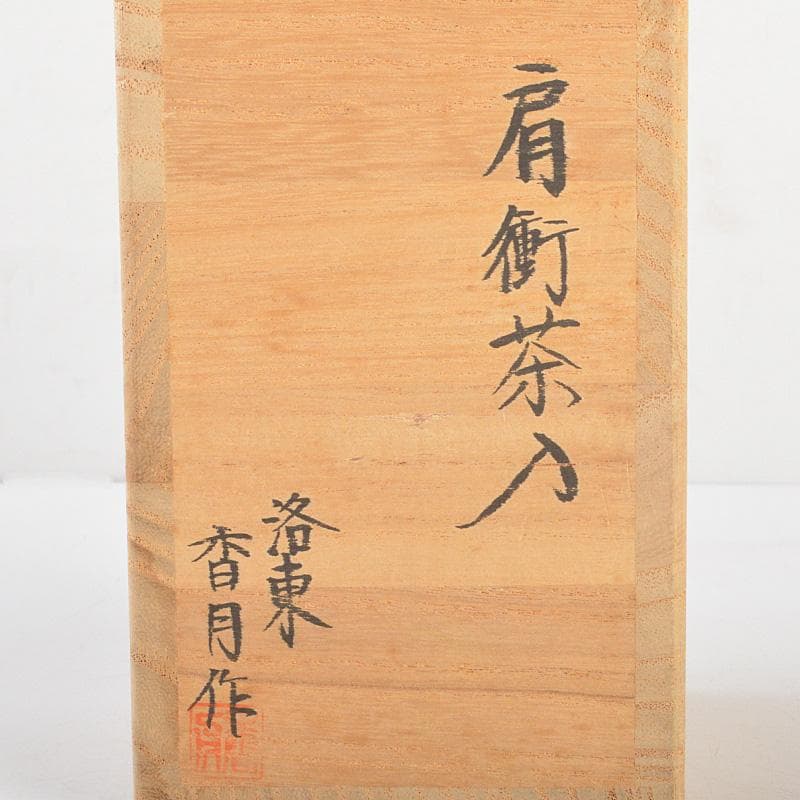 肩衝茶入
洛東
香月作